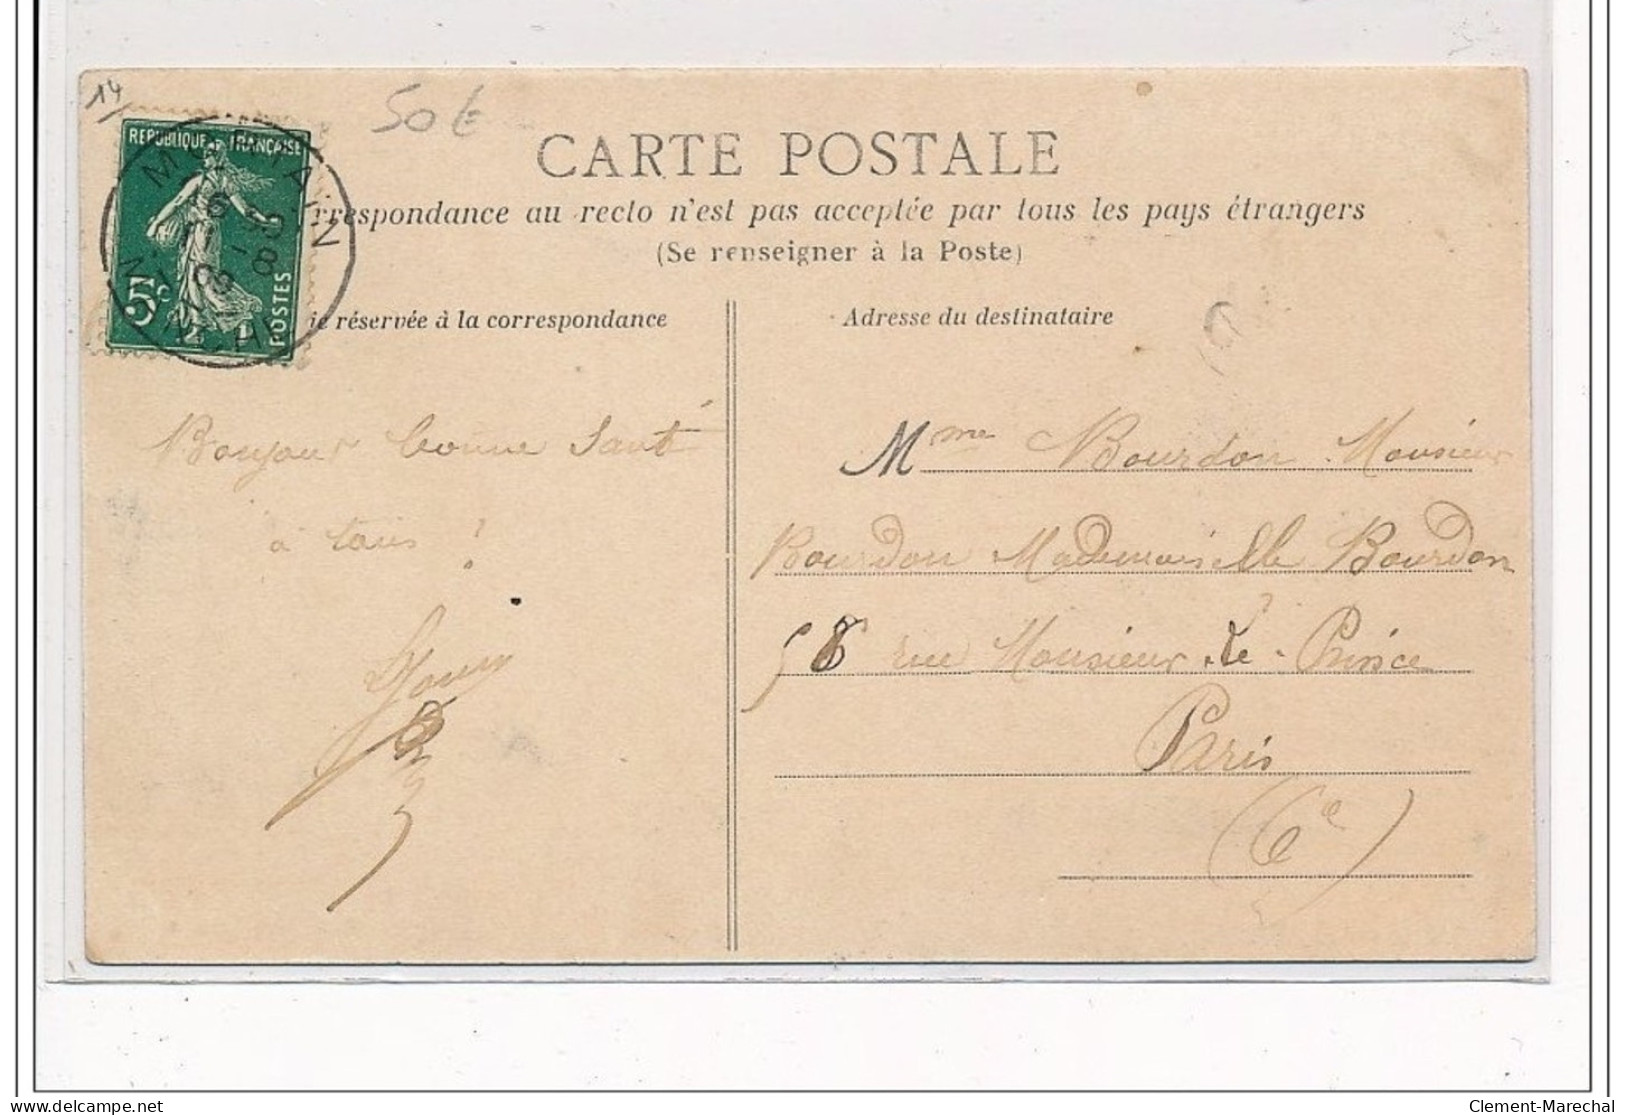 14
50 €
REPUBLIQUE FRANÇAISE
5c
POSTES
MORTAIN
MANCHE
16
09
CARTE POSTALE
rrespondance au recto n'est pas acceptée par tous les pays étrangers
(Se renseigner à la Poste)
ie réservée à la correspondance
Adresse du destinataire
Bonjour bonne Santé
à tous !
Mme Bourdon Monsieur
Bourdon Mademoiselle Bourdon
58 rue Monsieur-le-Prince
Paris
(6e)
delcampe.net
Clement-Marechal